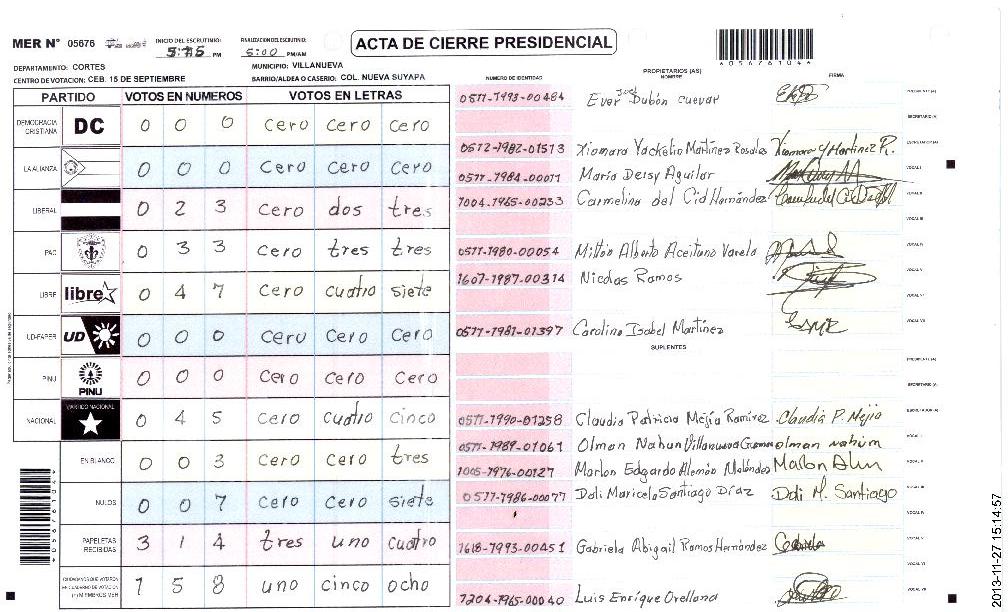 MER Nº 05676
INICIO DEL ESCRUTINIO: PM
FINALIZACION DEL ESCRUTINIO: 5:00 PM/AM
ACTA DE CIERRE PRESIDENCIAL
DEPARTAMENTO: CORTES MUNICIPIO: VILLANUEVA
CENTRO DE VOTACION: CEB. 15 DE SEPTIEMBRE BARRIO/ALDEA O CASERIO: COL. NUEVA SUYAPA
PARTIDO VOTOS EN NUMEROS VOTOS EN LETRAS
DEMOCRACIA CRISTIANA DC 0 0 0 cero cero cero
LA ALIANZA 0 0 0 cero cero cero
LIBERAL 0 2 3 cero dos tres
PAC 0 3 3 cero tres tres
LIBRE libre 0 4 7 cero cuatro siete
UD-FAPER UD 0 0 0 cero cero cero
PINU PINU 0 0 0 cero cero cero
NACIONAL PARTIDO NACIONAL 0 4 5 cero cuatro cinco
EN BLANCO 0 0 3 cero cero tres
NULOS 0 0 7 cero cero siete
PAPELETAS RECIBIDAS 3 1 4 tres uno cuatro
CIUDADANOS QUE VOTARON EN CUADERNO DE VOTACION (+) MIEMBROS MER 1 5 8 uno cinco ocho
NUMERO DE IDENTIDAD PROPIETARIOS (AS) NOMBRE FIRMA
0511-1993-00484 Ever José Dubón cuevar
0512-1982-01513 Xiomara Yackelin Martínez Rosales Xiomara Y Martinez R.
0511-1984-00011 Maria Deisy Aguilar
1004-1965-00233 Carmelina del Cid Hernández
0511-1980-00054 Milton Alberto Aceituno Varela
1607-1987-00314 Nicolas Ramos
0511-1981-01397 Carolina Isabel Martínez
SUPLENTES
0511-1990-01258 Claudia Patricia Mejía Ramírez Claudia P. Mejia
0511-1989-01061 Olman Nahun Villanueva olman nahum
1005-1976-00127 Marlon Edgardo Alemán Meléndez Marlon
0511-1986-00077 Doli Maricela Santiago Díaz Doli M. Santiago
1618-1993-00451 Gabriela Abigail Ramos Hernández
1204-1965-00040 Luis Enrique Orellana
*05676104*
2013-11-27 15:14:57